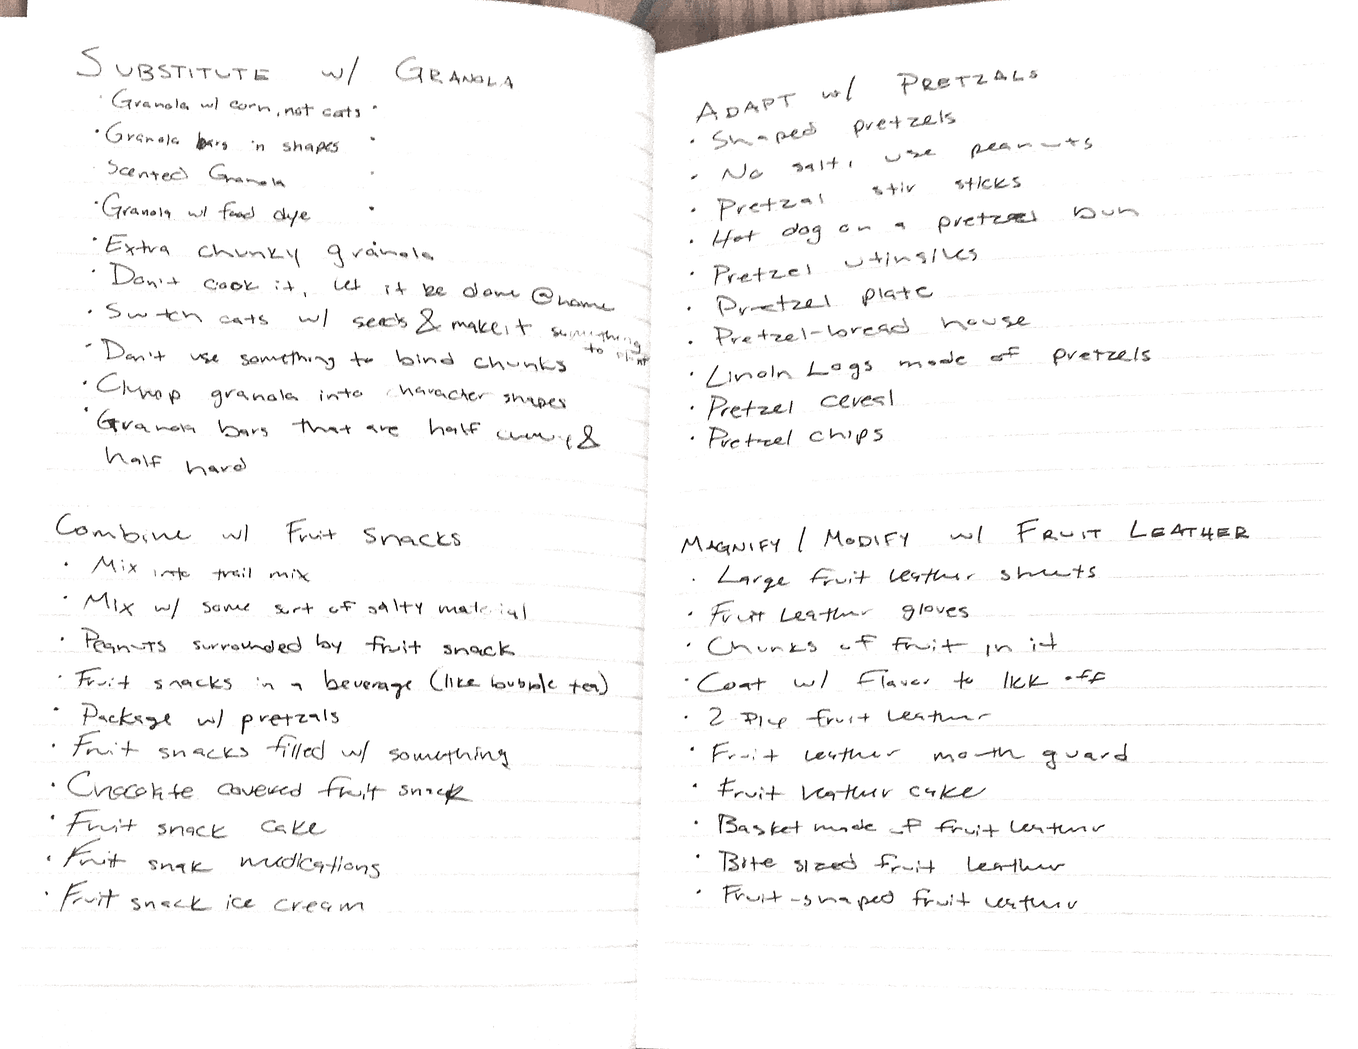 SUBSTITUTE w/ GRANOLA
· Granola w/ corn, not oats ·
· Granola bars in shapes ·
· Scented Granola ·
· Granola w/ food dye ·
· Extra chunky granola
· Don't cook it, let it be done @home
· Switch oats w/ seeds & make it something
to
· Don't use something to bind chunks
· Clump granola into character shapes
· Granola bars that are half chewy &
half hard
Combine w/ Fruit Snacks
· Mix into trail mix
· Mix w/ some sort of salty material
· Peanuts surrounded by fruit snack
· Fruit snacks in a beverage (like bubble tea)
· Package w/ pretzals
· Fruit snacks filled w/ something
· Chocolate covered fruit snack
· Fruit snack cake
· Fruit snak medications
· Fruit snack ice cream
ADAPT w/ PRETZALS
· Shaped pretzels
· No salt, use peanuts
· Pretzal stir sticks
· Hot dog on a pretzel bun
· Pretzel utinsiles
· Pretzel plate
· Pretzel-bread house
· Linoln Logs made of pretzels
· Pretzel cereal
· Pretzel chips
MAGNIFY / MODIFY w/ FRUIT LEATHER
· Large fruit leather sheets
· Fruit Leather gloves
· Chunks of fruit in it
· Coat w/ flavor to lick off
· 2 Ply fruit leather
· Fruit leather mouth guard
· Fruit leather cake
· Basket made of fruit leather
· Bite sized fruit leather
· Fruit-shaped fruit leather